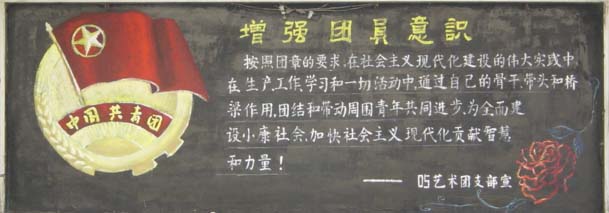 增强团员意识
中国共青团
按照团章的要求,在社会主义现代化建设的伟大实践中,
在生产工作,学习和一切活动中,通过自己的骨干带头和桥
梁作用,团结和带动周围青年共同进步,为全面建
设小康社会,加快社会主义现代化贡献智慧
和力量!
——05艺术团支部宣